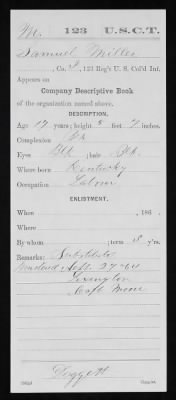 M. 123 U.S.C.T.
Samuel Miller
, Co. I, 123 Reg't U. S. Col'd Inf.
Appears on
Company Descriptive Book
of the organization named above.
DESCRIPTION.
Age 17 years; height 5 feet 7 inches.
Complexion Blk
Eyes Blk; hair Blk.
Where born Kentucky
Occupation Labour
ENLISTMENT.
When , 186 .
Where
By whom ; term 3 y'rs.
Remarks: Substitute
Mustered Sept. 27-64
Lexington
Capt
Doggett
Copyist.